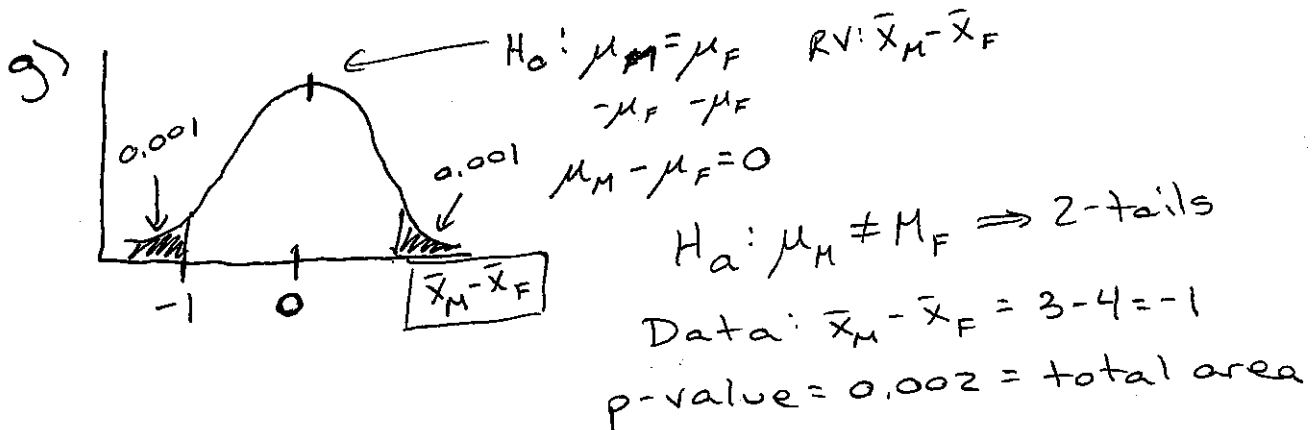 g)
H₀: μ_M = μ_F RV: x̄_M - x̄_F
-μ_F -μ_F
μ_M - μ_F = 0
0.001
0.001
Hₐ: μ_M ≠ M_F ⇒ 2-tails
-1 0 x̄_M - x̄_F
Data: x̄_M - x̄_F = 3-4 = -1
p-value = 0.002 = total area